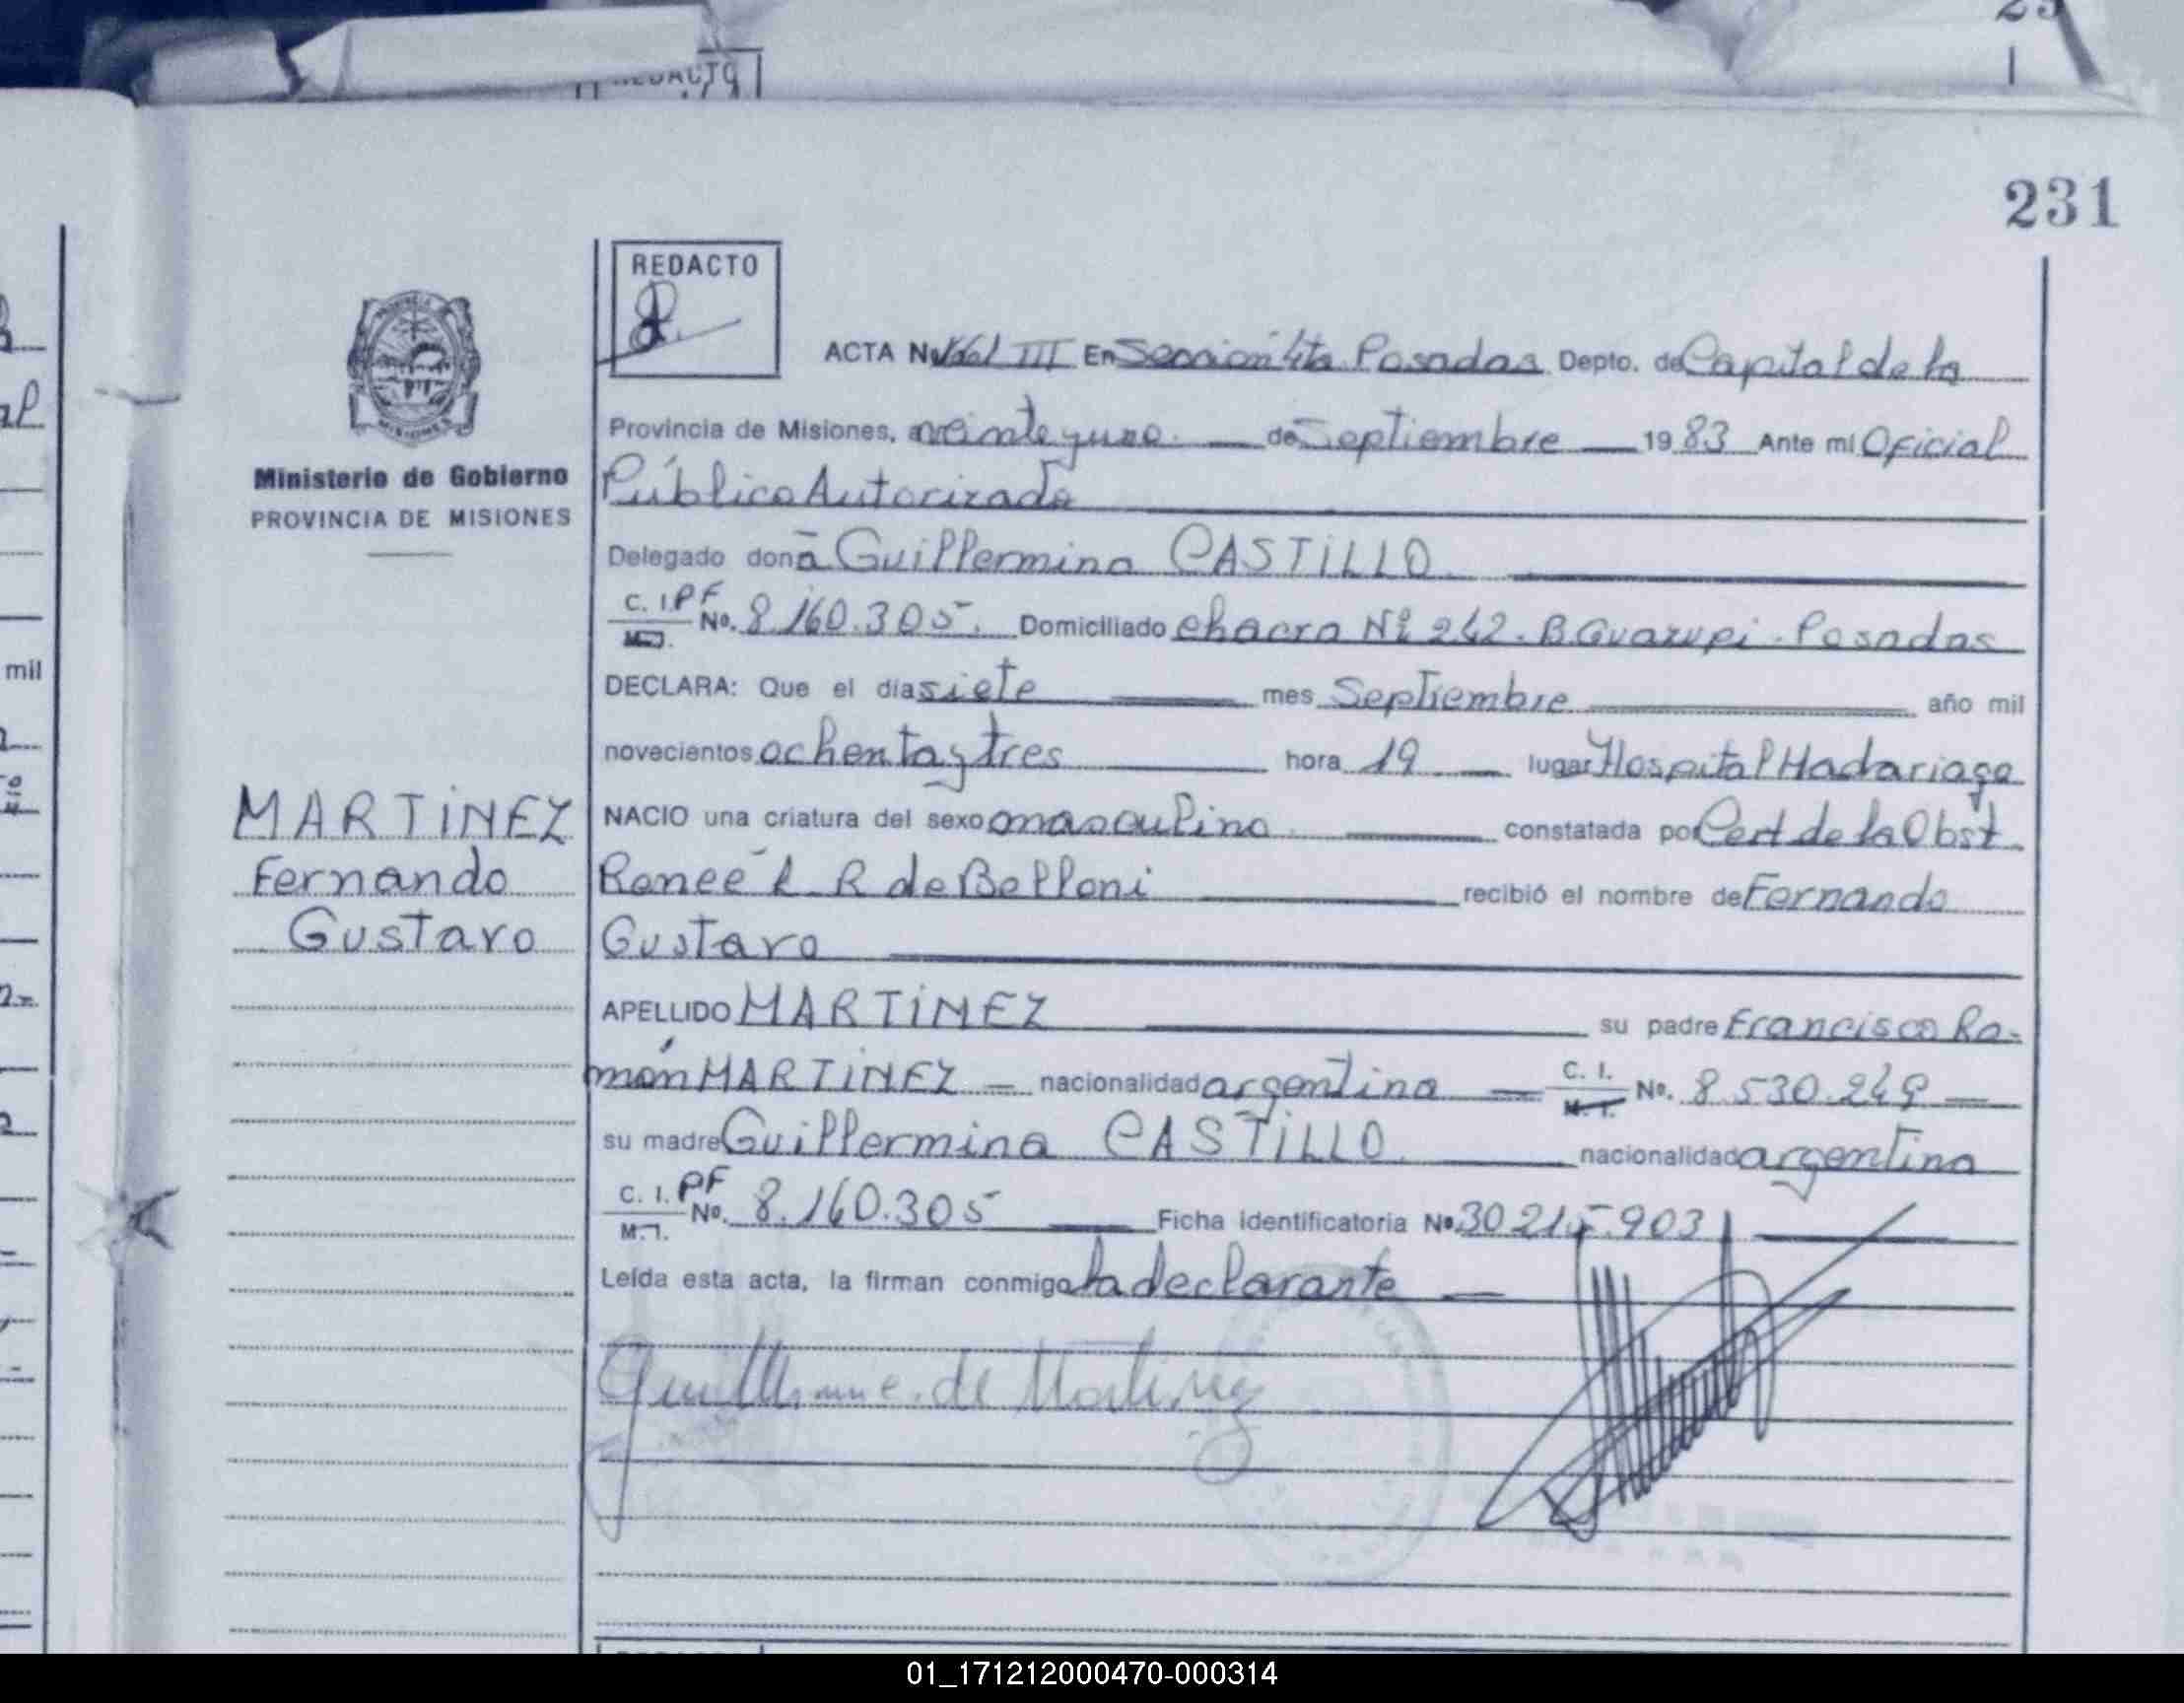 231
REDACTO
ACTA No. 1661 III En Sección 4ta Posadas Depto. de Capital de la
Provincia de Misiones, a veinteyuno de Septiembre 1983 Ante mi Oficial
Público Autorizado
Ministerio de Gobierno
PROVINCIA DE MISIONES
Delegado doña Guillermina CASTILLO
C. I. PF No. 8.160.305. Domiciliado chacra Nº 242. B. Guazupi. Posadas
DECLARA: Que el día siete mes Septiembre año mil
novecientos ochentaytres hora 19 lugar Hospital Madariaga
MARTINEZ
Fernando
Gustavo
NACIO una criatura del sexo masculino constatada por Cert de la Obst
Reneé L R de Belloni recibió el nombre de Fernando
Gustavo
APELLIDO MARTINEZ su padre Francisco Ra-
món MARTINEZ nacionalidad argentina C. I. M. I. No. 8.530.249
su madre Guillermina CASTILLO nacionalidad argentina
C. I. PF M.I. No. 8.160.305 Ficha identificatoria No. 30.215.903
Leída esta acta, la firman conmigo la declarante
de Martinez
01_171212000470-000314